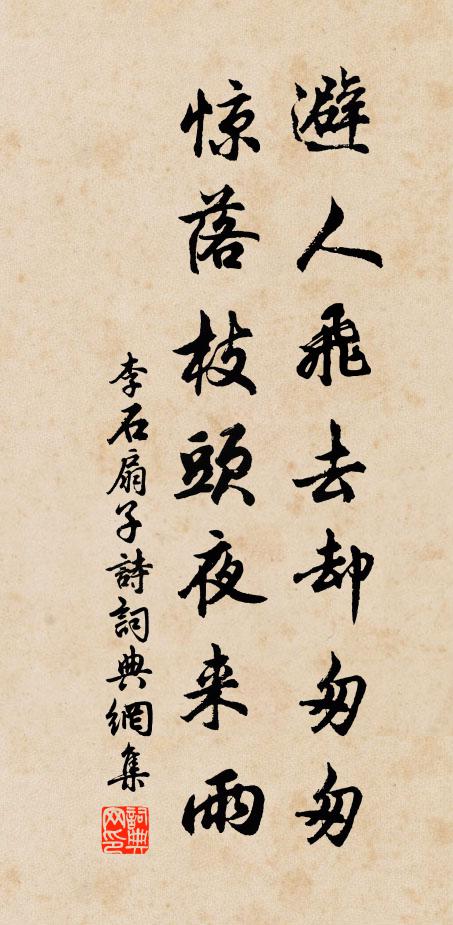 避人飛去却匆匆
惊落枝頭夜来雨
李石扇子詩詞典網集
詞典网印